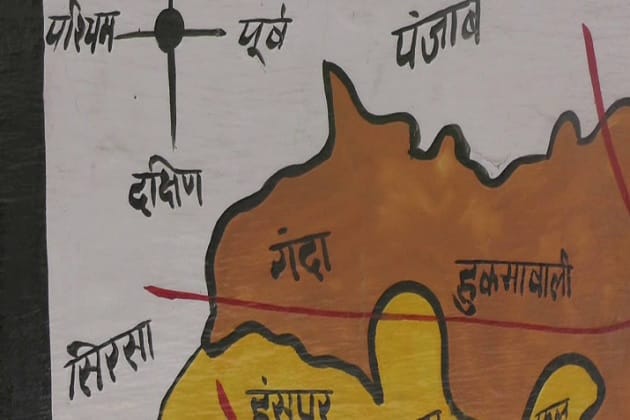 पश्चिम
पूर्व
पंजाब
दक्षिण
गंदा
हुकमावाली
सिरसा
हंसपुर